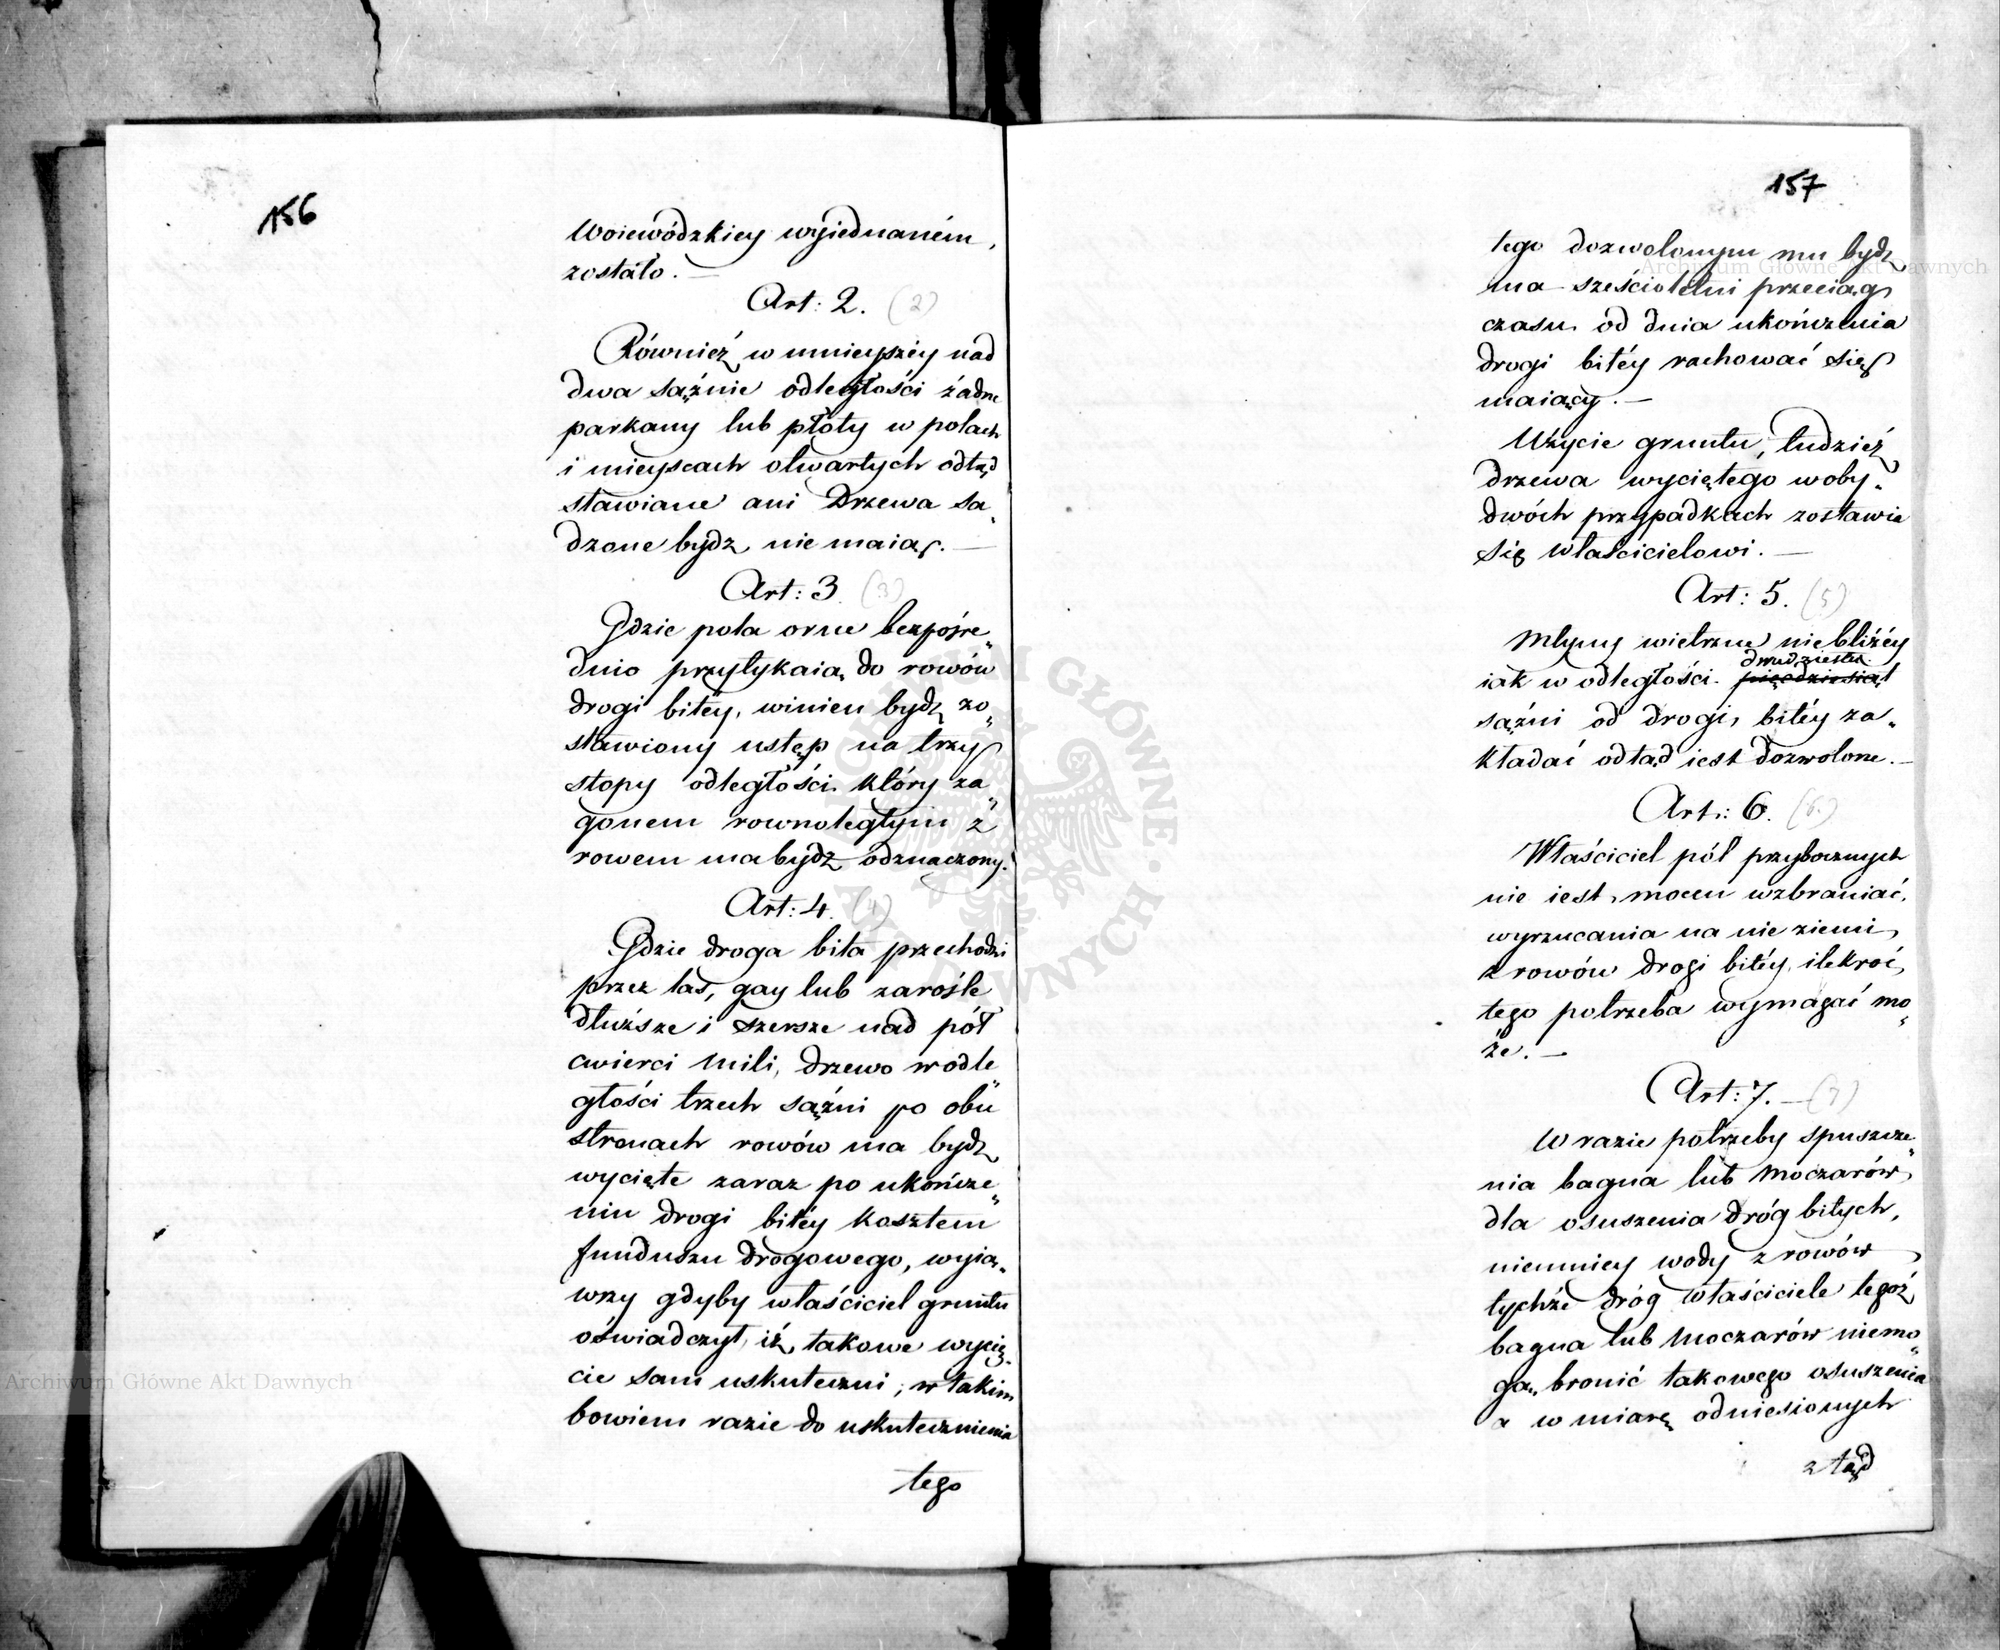 156
Woiewódzkiey wyiednaném,
zostało. —
Art: 2. (2)
Również w mnieyszéy nad
dwa sążnie odległości żadne
parkany lub płoty w polach
i mieyscach otwartych odtąd
stawiane ani Drzewa sa„
dzone bydź nie maią. —
Art: 3. (3)
Gdzie pola orne bezpośre„
dnio przytykaią do rowów
drogi bitéy, winien bydź zo„
stawiony ustęp na trzy
stopy odległości który za„
gonem rownoległym z
rowem ma bydź odznaczony.
Art: 4. (4)
Gdzie droga bita przechodzi
przez las, gay lub zarośle
dłuższe i szersze nad pół
cwierci mili, drzewo w odle„
głości trzech sążni po obu
stronach rowów ma bydź
wycięte zaraz po ukończe„
niu drogi bitéy kosztem
funduszu drogowego, wyią„
wszy gdyby właściciel gruntu
oświadczył, iż takowe wycię„
cie sam uskuteczni; w takim
bowiem razie do uskutecznienia
tego
157
tego dozwolonym mu bydź
ma sześcioletni przeciąg
czasu od dnia ukończenia
drogi bitéy rachować się
maiący. —
Użycie gruntu, tudzież
drzewa wyciętego woby„
dwóch przypadkach zostawia
się właścicielowi. —
Art: 5. (5)
Młyny wietrzne niebliżéy
dwudziestu
iak w odległości pięćdziesiąt
sążni od drogi bitéy za„
kładać odtąd iest dozwolone. —
Art: 6. (6.)
Właściciel pól przybocznych
nie iest mocen wzbraniać
wyrzucania na nie ziemi
z rowów drogi bitéy ilekroć
tego potrzeba wymagać mo„
że. —
Art: 7. — (7)
W razie potrzeby spuszcze„
nia bagna lub moczarów
dla osuszenia dróg bitych,
niemniey wody z rowów
tychże dróg właściciele tegoż
bagna lub moczarów niemo„
gą bronić takowego osuszenia
a w miarę odniesionych
ztąd
Archiwum Główne Akt Dawnych
Archiwum Główne Akt Dawnych